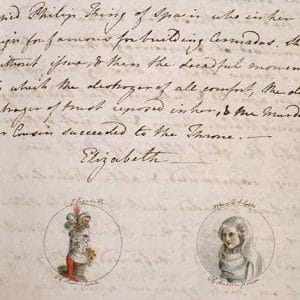 ried Philip King of Spain who in her
eign for famous for building Armadas.
ithout issue, & then the dreadful momen
which the destroyer of all comfort, the d
trayer of trust reposed in her, & the Murd
r Cousin succeeded to the Throne. —
Elizabeth —
Elizabeth